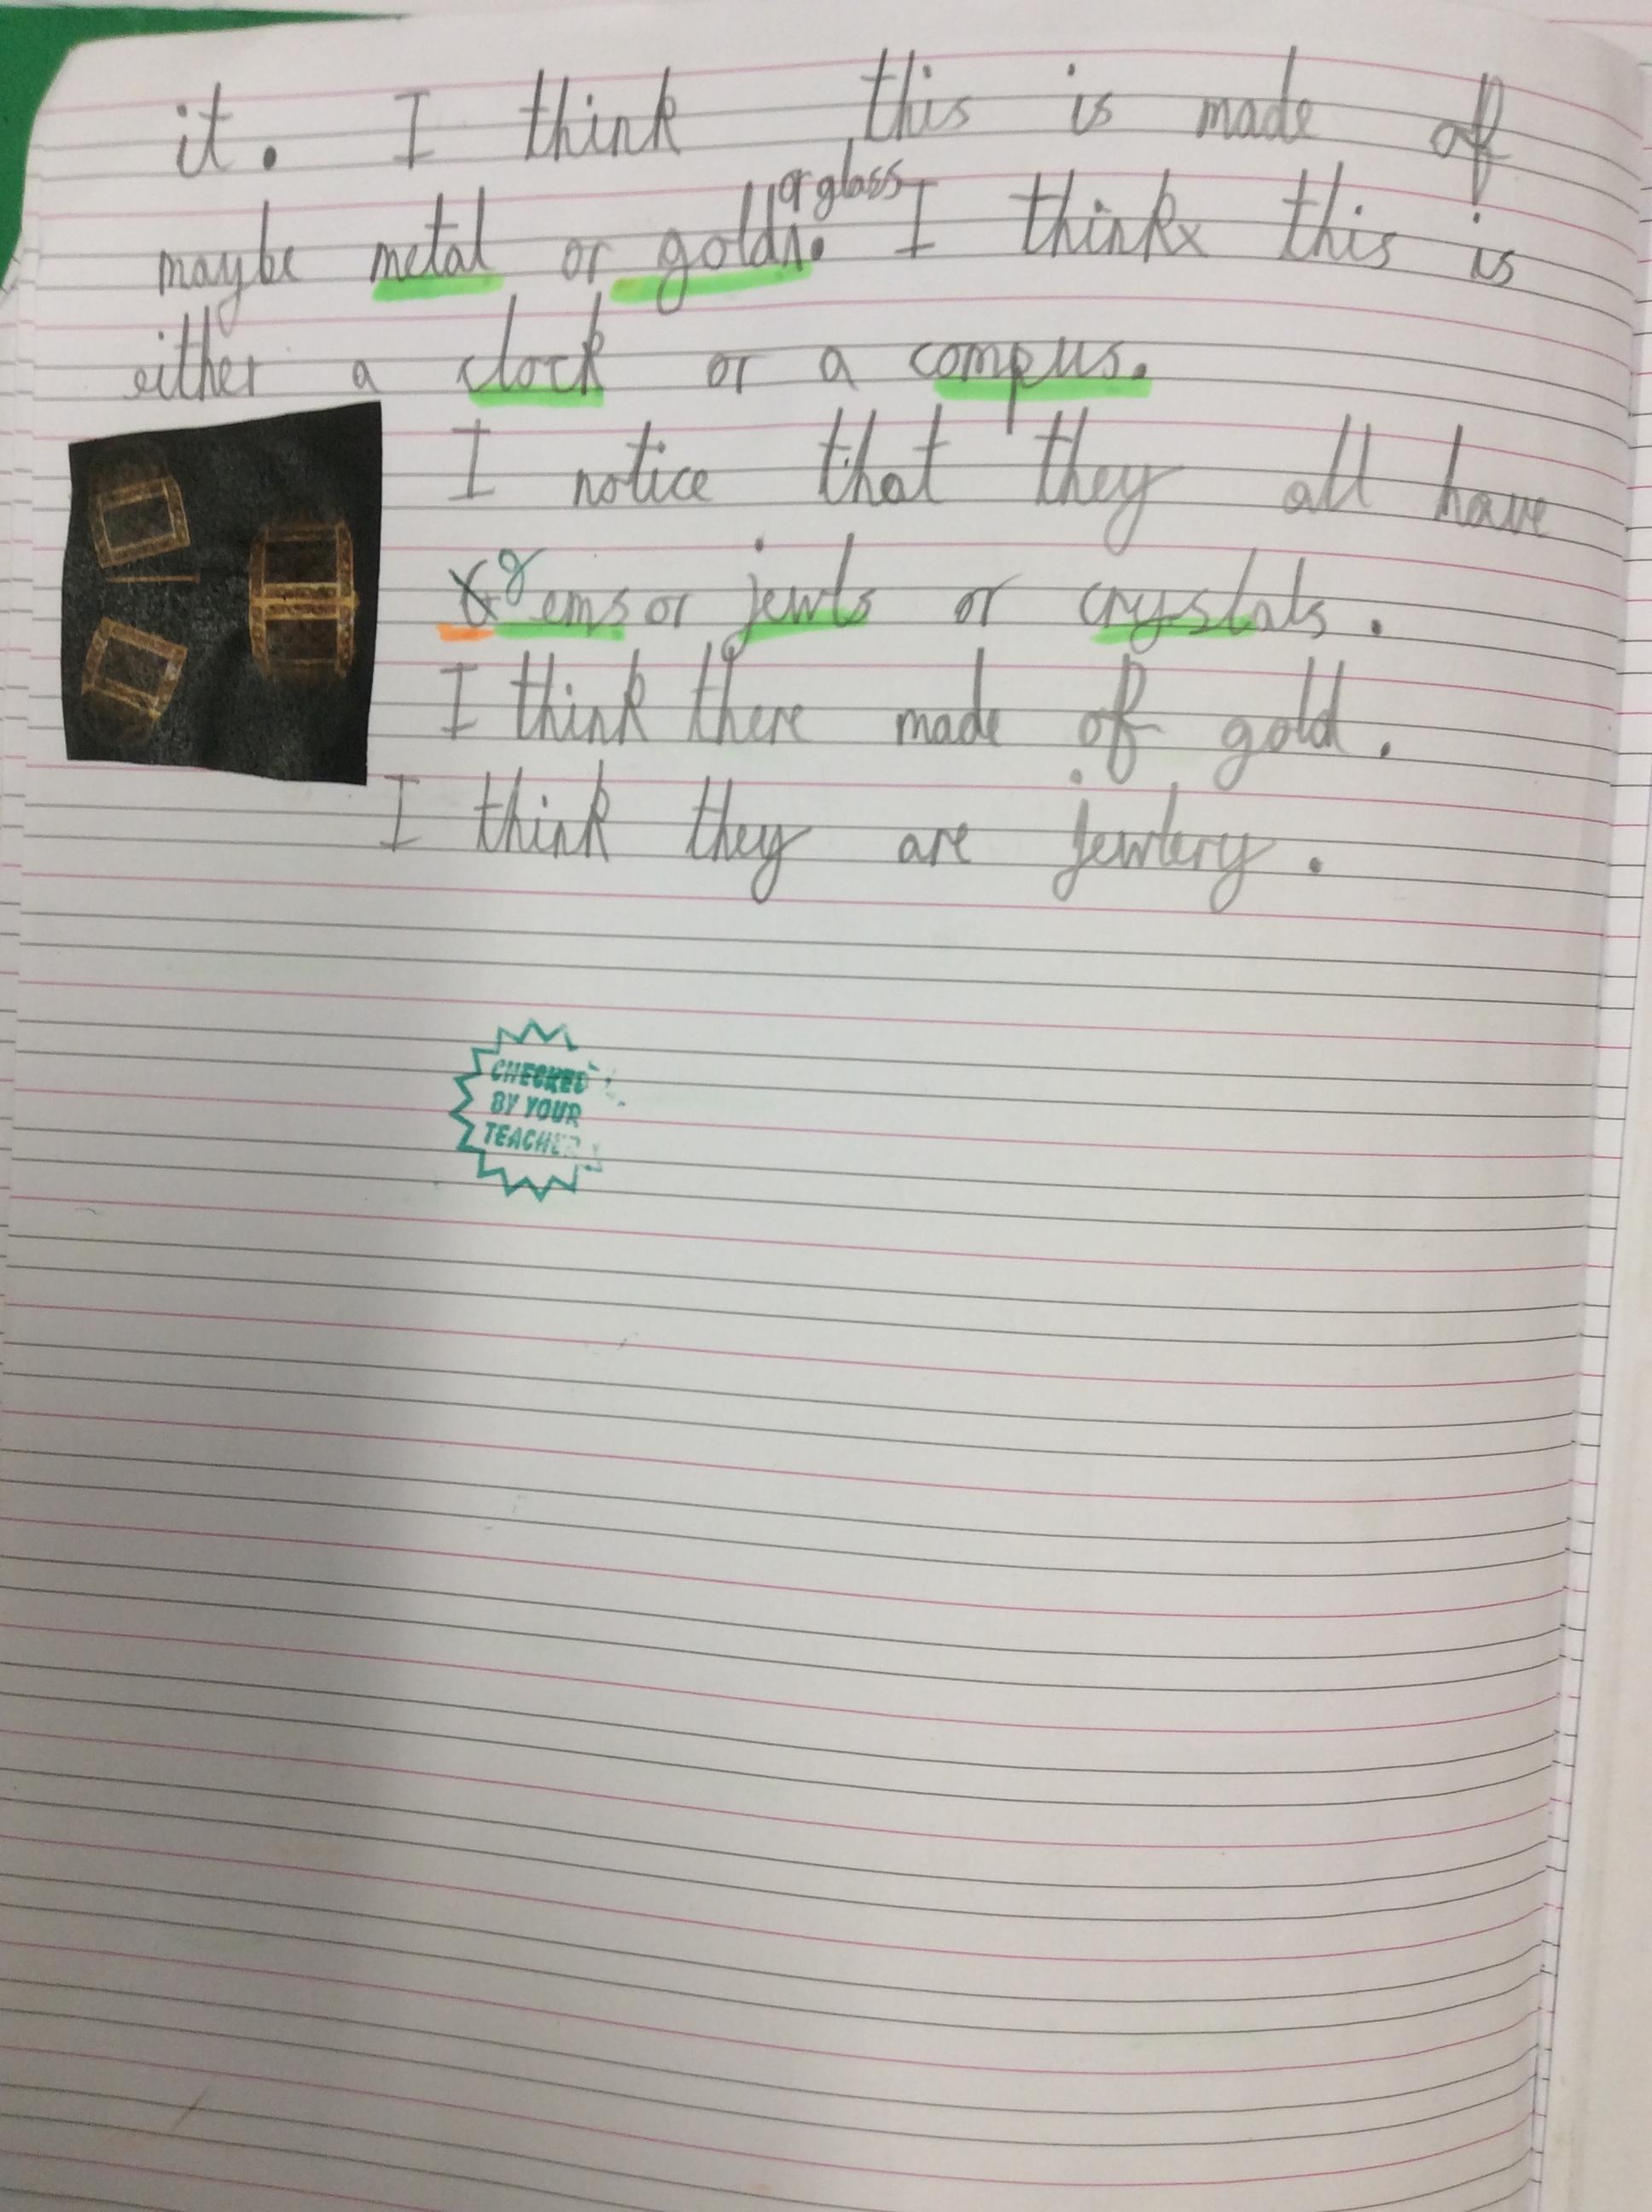 it. I think this is made of
maybe metal or gold or glass. I think this is
either a clock or a compus.
I notice that they all have
gems or jewls or crystals.
I think there made of gold.
I think they are jewlery.
CHECKED
BY YOUR
TEACHER